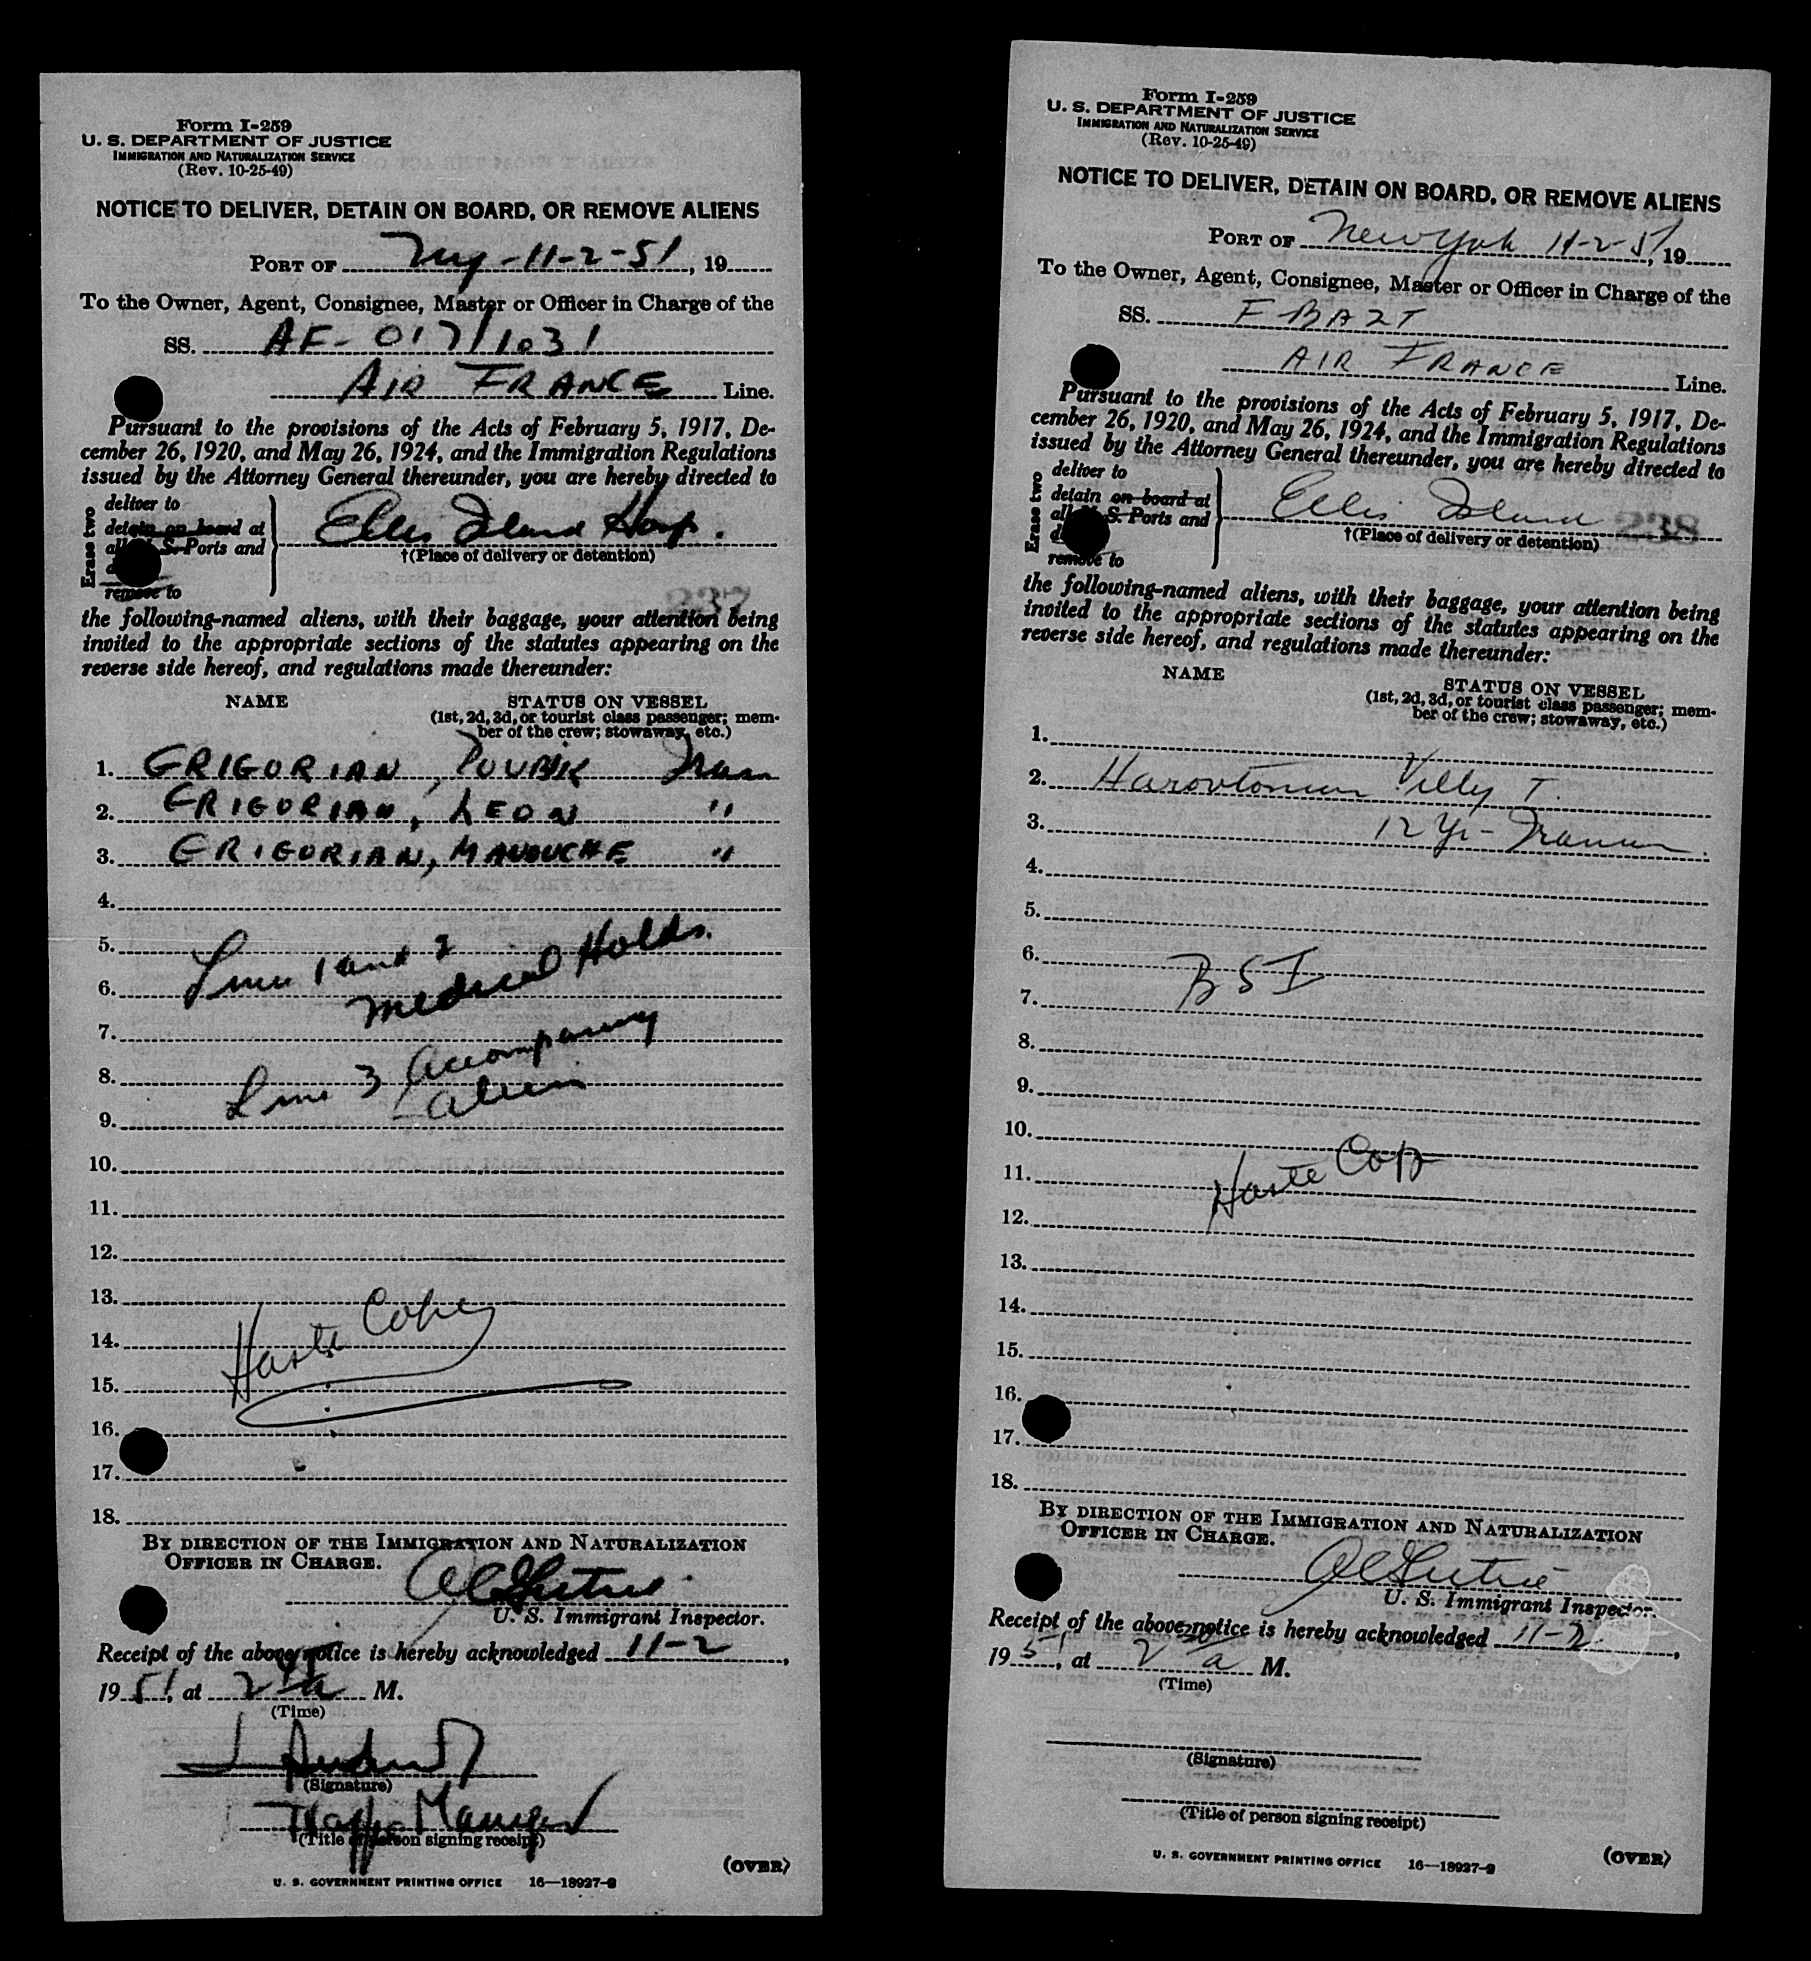 Form I-259
U. S. DEPARTMENT OF JUSTICE
IMMIGRATION AND NATURALIZATION SERVICE
(Rev. 10-25-49)
NOTICE TO DELIVER, DETAIN ON BOARD, OR REMOVE ALIENS
PORT OF 11-2-51, 19
To the Owner, Agent, Consignee, Master or Officer in Charge of the
SS. AF-017/1031
AIR FRANCE Line.
Pursuant to the provisions of the Acts of February 5, 1917, De-
cember 26, 1920, and May 26, 1924, and the Immigration Regulations
issued by the Attorney General thereunder, you are hereby directed to
Erase two
deliver to
detain on board at
all S. Ports and
remove to
Ellis Island Hosp.
†(Place of delivery or detention)
237
the following-named aliens, with their baggage, your attention being
invited to the appropriate sections of the statutes appearing on the
reverse side hereof, and regulations made thereunder:
NAME STATUS ON VESSEL
(1st, 2d, 3d, or tourist class passenger; mem-
ber of the crew; stowaway, etc.)
1. GRIGORIAN, Iran
2. GRIGORIAN, LEON "
3. GRIGORIAN, MANOUCHE "
4.
5. Line 1 and 2
6. Medical Holds.
7.
8. Line 3 Accompanying
9. alien
10.
11.
12.
13.
14. Haste Copy
15.
16.
17.
18.
BY DIRECTION OF THE IMMIGRATION AND NATURALIZATION
OFFICER IN CHARGE.
U. S. Immigrant Inspector.
Receipt of the above notice is hereby acknowledged 11-2,
1951, at 2 a M.
(Time)
(Signature)
Traffic Manager
(Title of person signing receipt)
(OVER)
U. S. GOVERNMENT PRINTING OFFICE 16—18927-2
Form I-259
U. S. DEPARTMENT OF JUSTICE
IMMIGRATION AND NATURALIZATION SERVICE
(Rev. 10-25-49)
NOTICE TO DELIVER, DETAIN ON BOARD, OR REMOVE ALIENS
PORT OF New York 11-2-51, 19
To the Owner, Agent, Consignee, Master or Officer in Charge of the
SS. F BAZT
AIR FRANCE Line.
Pursuant to the provisions of the Acts of February 5, 1917, De-
cember 26, 1920, and May 26, 1924, and the Immigration Regulations
issued by the Attorney General thereunder, you are hereby directed to
Erase two
deliver to
detain on board at
all S. Ports and
remove to
Ellis Island 238
†(Place of delivery or detention)
the following-named aliens, with their baggage, your attention being
invited to the appropriate sections of the statutes appearing on the
reverse side hereof, and regulations made thereunder:
NAME STATUS ON VESSEL
(1st, 2d, 3d, or tourist class passenger; mem-
ber of the crew; stowaway, etc.)
1.
2. Villy T.
3. 12 Yr-
4.
5.
6. BSI
7.
8.
9.
10.
11. Haste Copy
12.
13.
14.
15.
16.
17.
18.
BY DIRECTION OF THE IMMIGRATION AND NATURALIZATION
OFFICER IN CHARGE.
U. S. Immigrant Inspector.
Receipt of the above notice is hereby acknowledged 11-2,
1951, at 2 30 a M.
(Time)
(Signature)
(Title of person signing receipt)
(OVER)
U. S. GOVERNMENT PRINTING OFFICE 16—18927-2